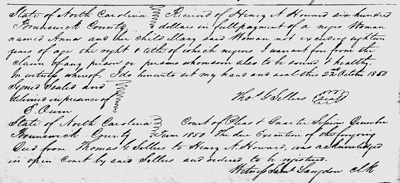 State of North Carolina } Received of Henry A Howard six hundred
Brunswick County } dollars in full payment of a negro Woman
named Anna and her Child Mary said Woman not exceeding eighteen
years of age the right & title of which negroes I warrant for from the
claim of any person or persons whomsoever also to be sound & healthy
In witness whereof I do hereunto set my hand and seal this 22 Octbr 1850
Signed Sealed and
delivered in presence of Thos G Sellers (Seal)
E. Owen
State of North Carolina } Court of Pleas & Quarter Session December
Brunswick County } Term 1850 The due Execution of the foregoing
Deed from Thomas G Sellers to Henry A Howard was acknowledged
in open Court by said Sellers and ordered to be registered.
Witness Langdon Clk